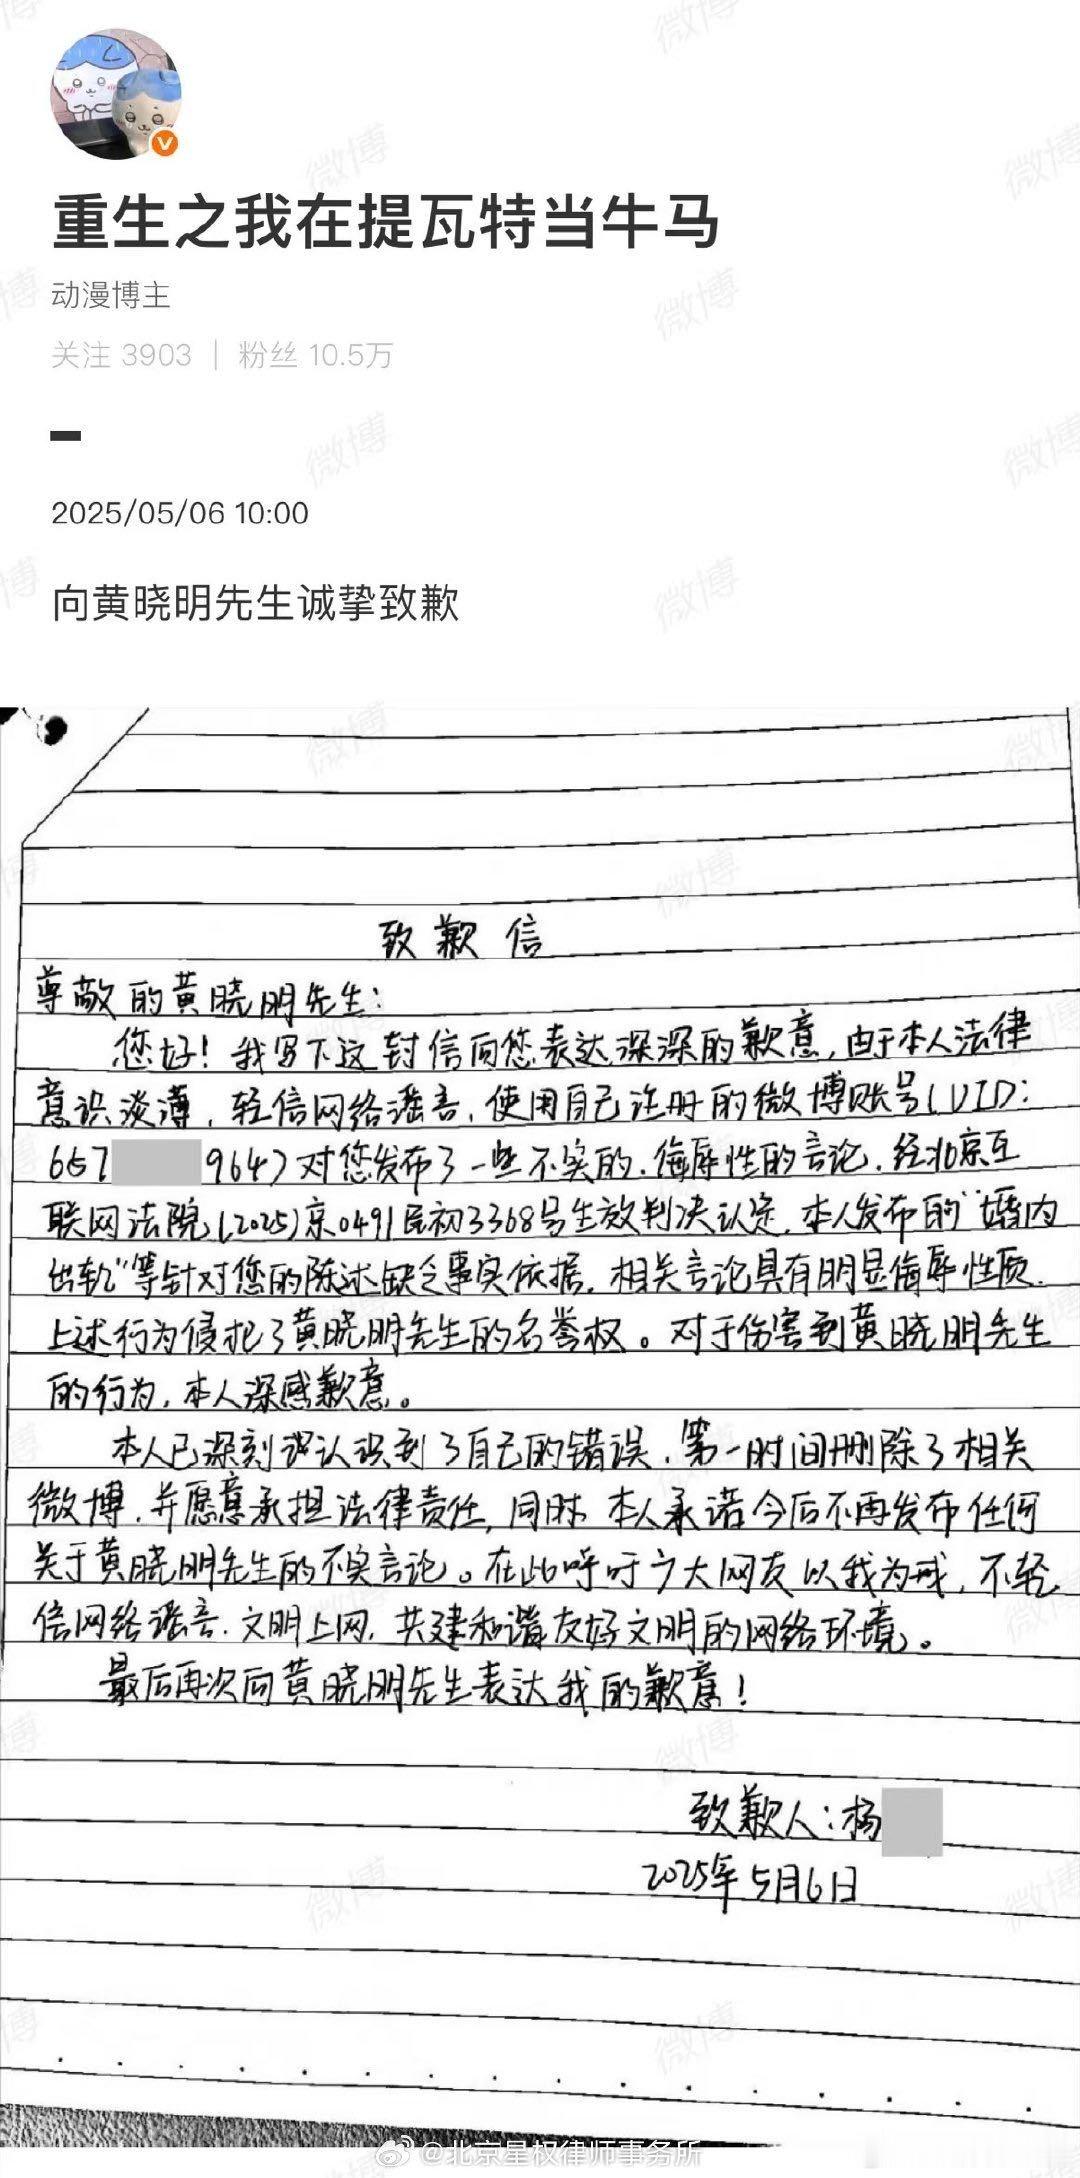 重生之我在提瓦特当牛马
动漫博主
关注 3903 | 粉丝 10.5万
2025/05/06 10:00
向黄晓明先生诚挚致歉
致歉信
尊敬的黄晓明先生：
您好！我写下这封信向您表达深深的歉意，由于本人法律
意识淡薄，轻信网络谣言，使用自己注册的微博账号（UID：
657 9647）对您发布了一些不实的、侮辱性的言论，经北京互
联网法院（2025）京0491民初3368号生效判决认定，本人发布的“婚内
出轨”等针对您的陈述缺乏事实依据，相关言论具有明显侮辱性质，
上述行为侵犯了黄晓明先生的名誉权。对于伤害到黄晓明先生
的行为，本人深感歉意。
本人已深刻认识到了自己的错误，第一时间删除了相关
微博，并愿意承担法律责任，同时，本人承诺今后不再发布任何
关于黄晓明先生的不实言论。在此呼吁广大网友以我为戒，不轻
信网络谣言，文明上网，共建和谐友好文明的网络环境。
最后再次向黄晓明先生表达我的歉意！
致歉人：杨
2025年5月6日
@北京星权律师事务所